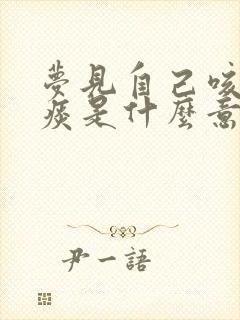 夢見自己咳
痰是什麼意
尹一語